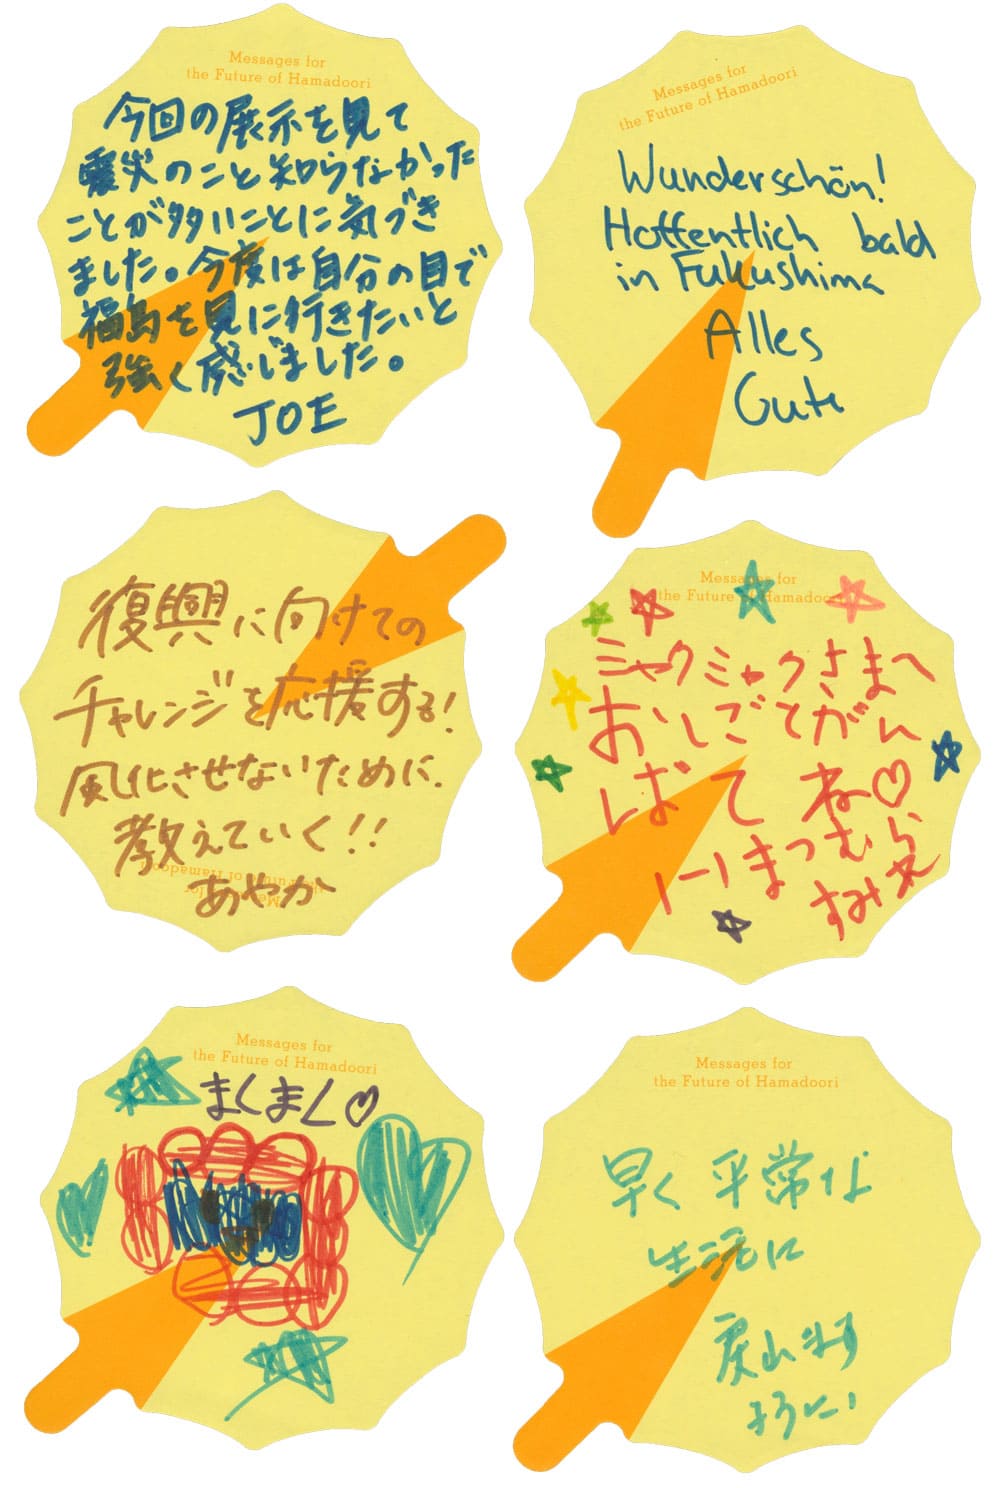 Messages for
the Future of Hamadoori
今回の展示を見て
震災のこと知らなかった
ことが多いことに気づき
ました。今度は自分の目で
福島を見に行きたいと
強く感じました。
JOE
Messages for
the Future of Hamadoori
Wunderschön!
Hoffentlich bald
in Fukushima
Alles
Gute
復興に向けての
チャレンジを応援する!
風化させないために、
教えていく!!
あやか
Messages for
the Future of Hamadoori
Messages for
the Future of Hamadoori
ミャクミャクさまへ
おしごとがん
ばてね♡
まつむら
すみ
Messages for
the Future of Hamadoori
まくまく♡
Messages for
the Future of Hamadoori
早く平常な
生活に
戻ります
ように!